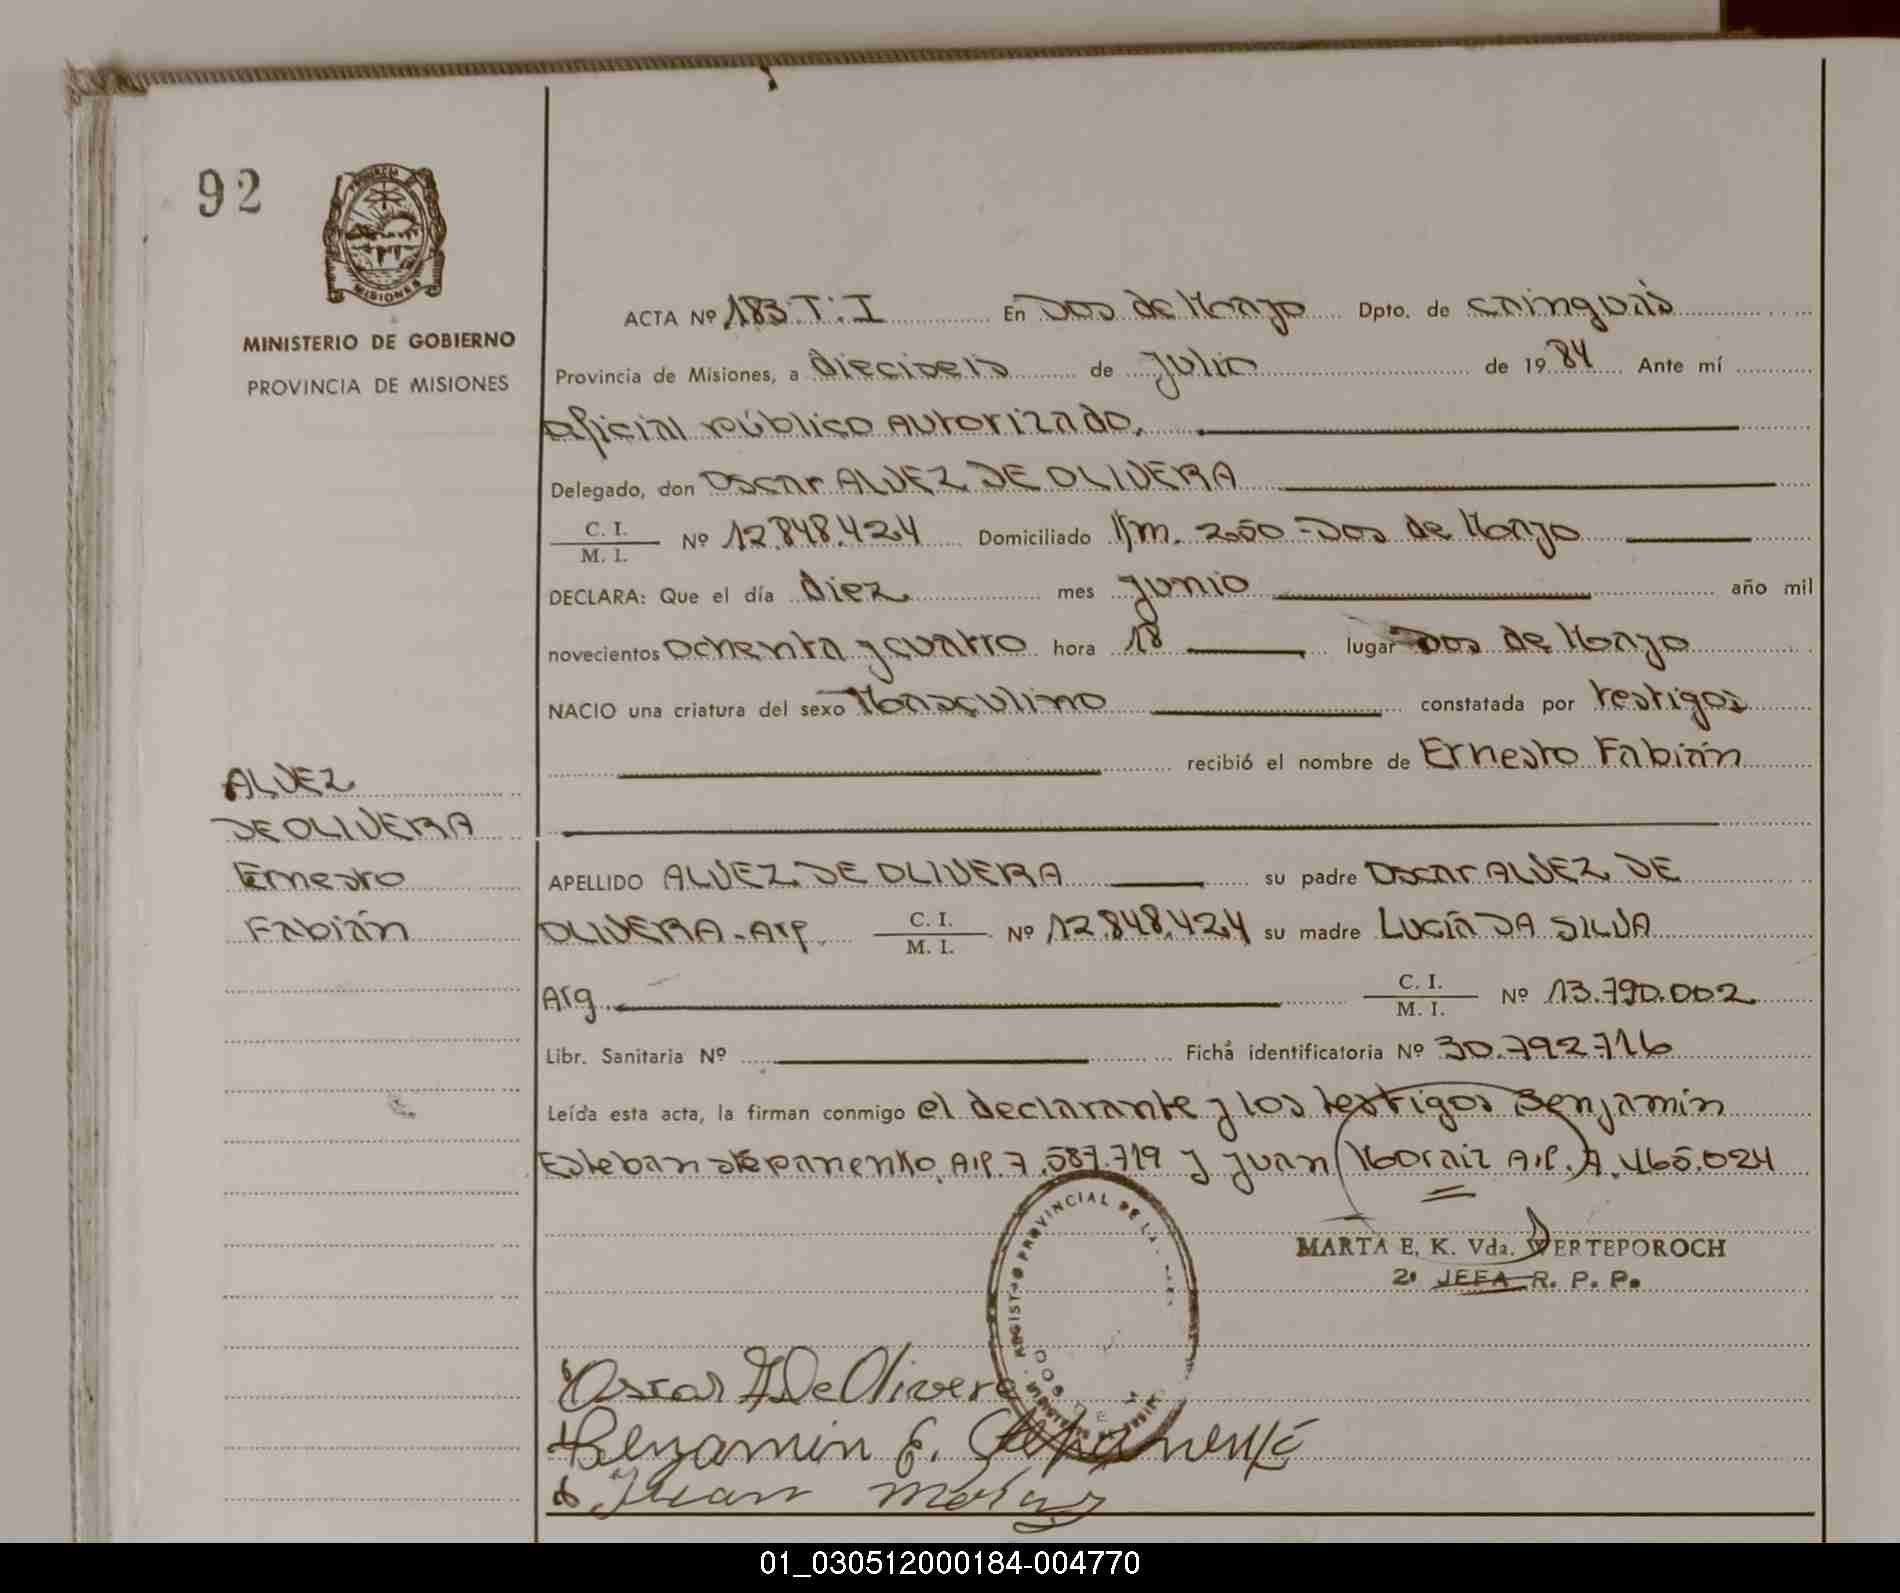 92
PROVINCIA DE
MISIONES
MINISTERIO DE GOBIERNO
PROVINCIA DE MISIONES
ALVEZ
DE OLIVERA
Ernesto
Fabián
ACTA Nº 183.T:I En Dos de Mayo Dpto. de Cainguás
Provincia de Misiones, a dieciseis de Julio de 1984 Ante mí
Oficial Público Autorizado.
Delegado, don Oscar ALVEZ DE OLIVERA
C. I.
M. I. Nº 12.848.424 Domiciliado Km. 250 - Dos de Mayo
DECLARA: Que el día diez mes junio año mil
novecientos ochenta y cuatro hora 18 lugar Dos de Mayo
NACIO una criatura del sexo Masculino constatada por testigos
recibió el nombre de Ernesto Fabián
APELLIDO ALVEZ DE OLIVERA su padre Oscar ALVEZ DE
OLIVERA - Arg. C. I. M. I. Nº 12.848.424 su madre LUCÍA DA SILVA
Arg. C. I. M. I. Nº 13.790.002
Libr. Sanitaria Nº Ficha identificatoria Nº 30.792.716
Leída esta acta, la firman conmigo el declarante y los testigos Benjamín
Esteban Stepanenko A.P. 7.587.719 y Juan Moraiz A.P. A. 465.024
MARTA E. K. Vda. WERTEPOROCH
2º JEFA R. P. P.
PROVINCIAL DE LA
Oscar A De Olivera
Benjamin E. Stepanenko
Juan Moraiz
01_030512000184-004770